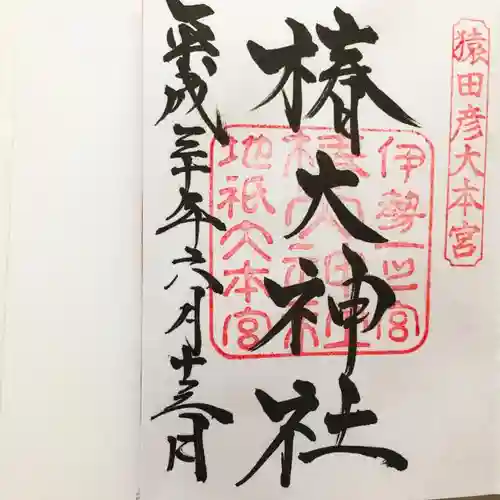 猿田彦大本宮
椿大神社
伊勢一之宮
椿大神社
地祇大本宮
平成三十年六月十三日